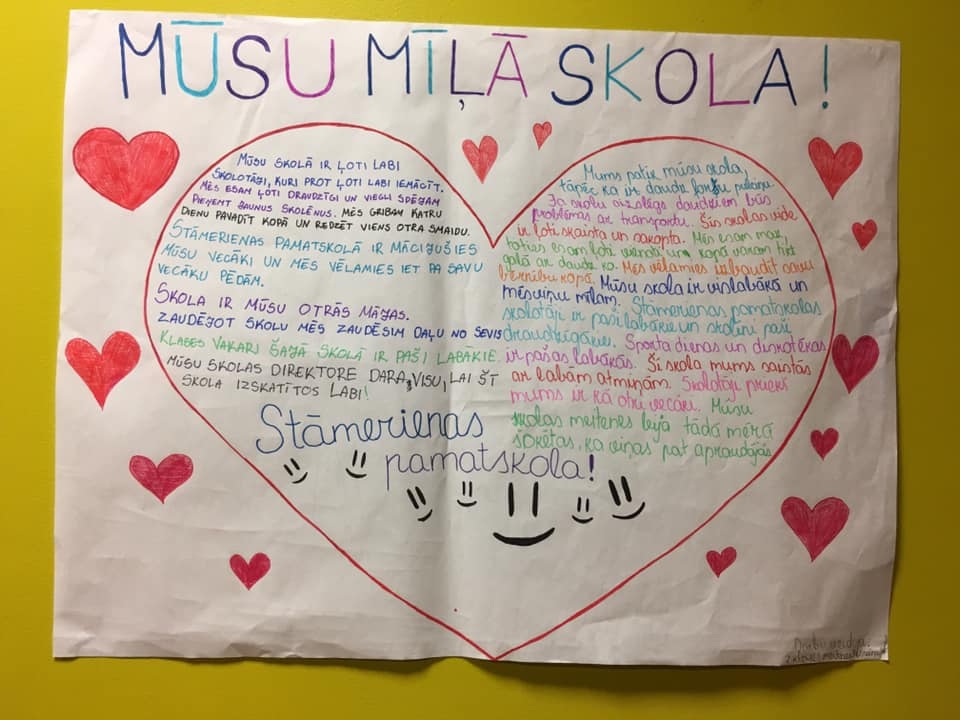 MŪSU MĪĻĀ SKOLA!
MŪSU SKOLĀ IR ĻOTI LABI
SKOLOTĀJI, KURI PROT ĻOTI LABI IEMĀCĪT.
MĒS ESAM ĻOTI DRAUDZĪGI UN VIEGLI SPĒJAM
PIEŅEMT JAUNUS SKOLĒNUS. MĒS GRIBAM KATRU
DIENU PAVADĪT KOPĀ UN REDZĒT VIENS OTRA SMAIDU.
STĀMERIENAS PAMATSKOLĀ IR MĀCIJUŠIES
MŪSU VECĀKI UN MĒS VĒLAMIES IET PA SAVU
VECĀKU PĒDĀM.
SKOLA IR MŪSU OTRĀS MĀJAS.
ZAUDĒJOT SKOLU MĒS ZAUDĒSIM DAĻU NO SEVIS
KLASES VAKARI ŠAJĀ SKOLĀ IR PAŠI LABĀKIE.
MŪSU SKOLAS DIREKTORE DARA, VISU, LAI ŠĪ
SKOLA IZSKATĪTOS LABI!
Mums patīk mūsu skola,
tāpēc ka ir daudz foršu
Ja skolu aizslēgs daudziem būs
problēmas ar transportu. Šīs skolas vide
ir ļoti skaista un sakopta. Mēs esam maz,
toties esam ļoti vienoti un kopā varam tikt
galā ar daudz ko. Mēs vēlamies izbaudīt savu
bērnību kopā. Mūsu skola ir vislabākā un
mēs viņu mīlam. Stāmerienas pamatskolas
skolotāji ir paši labākie un skolēni paši
draudzīgākie. Sporta dienas un diskotēkas
ir pašas labākās. Šī skola mums saistās
ar labām atmiņām. Skolotāji priekš
mums ir kā otri vecāki. Mūsu
skolas meitenes bija tādā mērā
šokētas, ka viņas pat apraudājās
Stāmerienas
pamatskola!